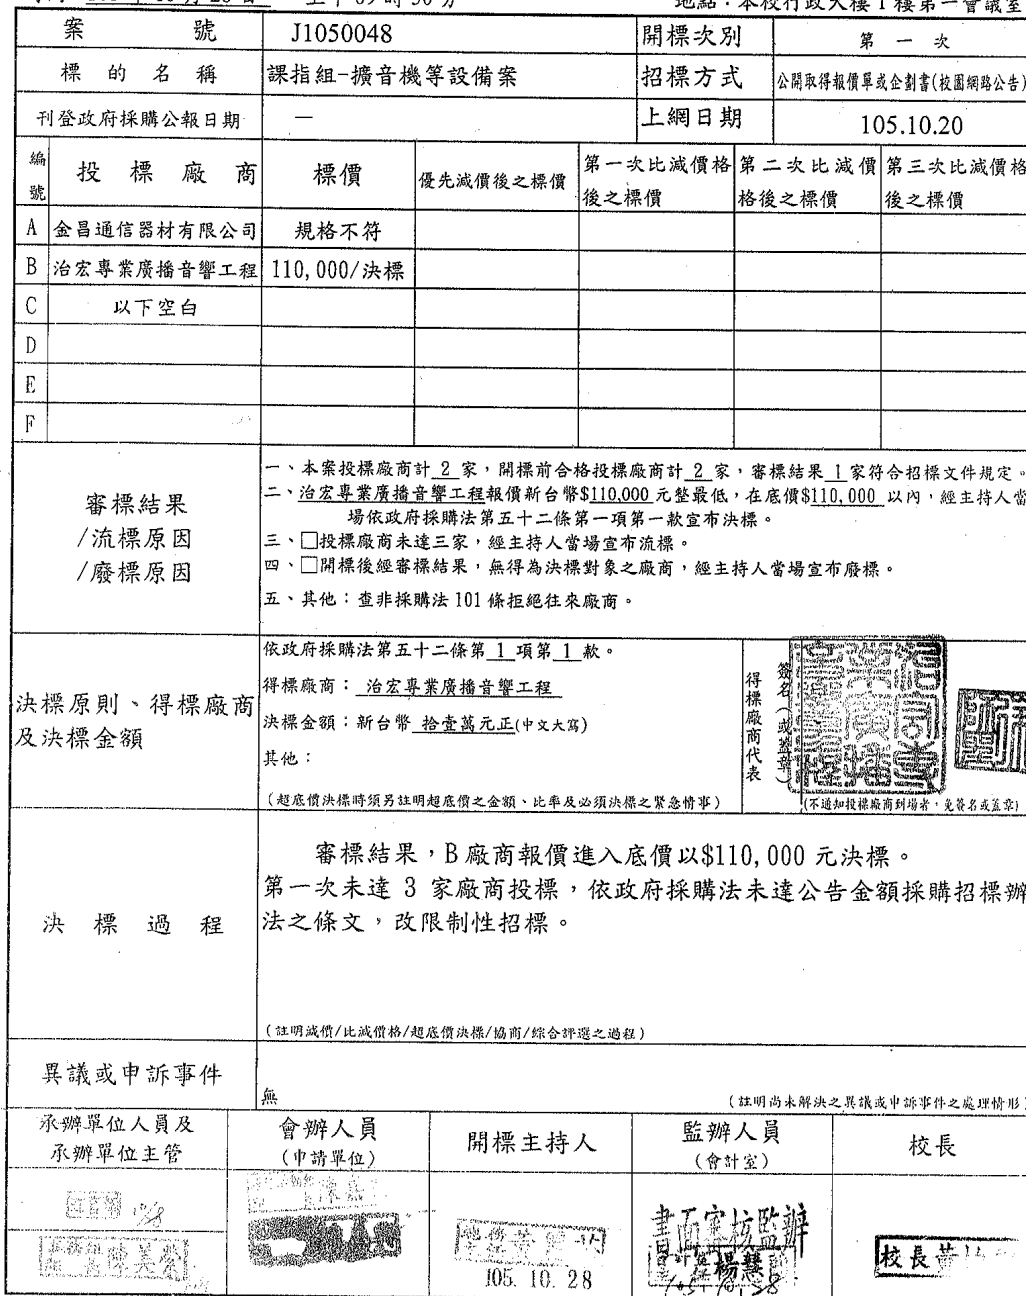 上午09時30分 地點：本校行政大樓1樓第一會議室
案號 J1050048 開標次別 第一次
標的名稱 課指組-擴音機等設備案 招標方式 公開取得報價單或企劃書(校園網路公告)
刊登政府採購公報日期 — 上網日期 105.10.20
編號 投標廠商 標價 優先減價後之標價 第一次比減價格後之標價 第二次比減價格後之標價 第三次比減價格後之標價
A 金昌通信器材有限公司 規格不符
B 治宏專業廣播音響工程 110,000/決標
C 以下空白
D
E
F
審標結果
/流標原因
/廢標原因
一、本案投標廠商計 2 家，開標前合格投標廠商計 2 家，審標結果 1 家符合招標文件規定。
二、治宏專業廣播音響工程報價新台幣$110,000 元整最低，在底價$110,000 以內，經主持人當
場依政府採購法第五十二條第一項第一款宣布決標。
三、□投標廠商未達三家，經主持人當場宣布流標。
四、□開標後經審標結果，無得為決標對象之廠商，經主持人當場宣布廢標。
五、其他：查非採購法 101 條拒絕往來廠商。
決標原則、得標廠商
及決標金額
依政府採購法第五十二條第 1 項第 1 款。
得標廠商： 治宏專業廣播音響工程
決標金額：新台幣 拾壹萬元正(中文大寫)
其他：
(超底價決標時須另註明超底價之金額、比率及必須決標之緊急情事)
得標廠商代表
簽名(或蓋章)
(不通知投標廠商到場者，免簽名或蓋章)
決標過程
審標結果，B 廠商報價進入底價以$110,000 元決標。
第一次未達 3 家廠商投標，依政府採購法未達公告金額採購招標辦
法之條文，改限制性招標。
(註明減價/比減價格/超底價決標/協商/綜合評選之過程)
異議或申訴事件
無
(註明尚未解決之異議或申訴事件之處理情形)
承辦單位人員及
承辦單位主管
會辦人員
(申請單位)
開標主持人
監辦人員
(會計室)
校長
陳美鶯
105. 10. 28
書面審核監辦
楊慧
105 10/28
校長黃